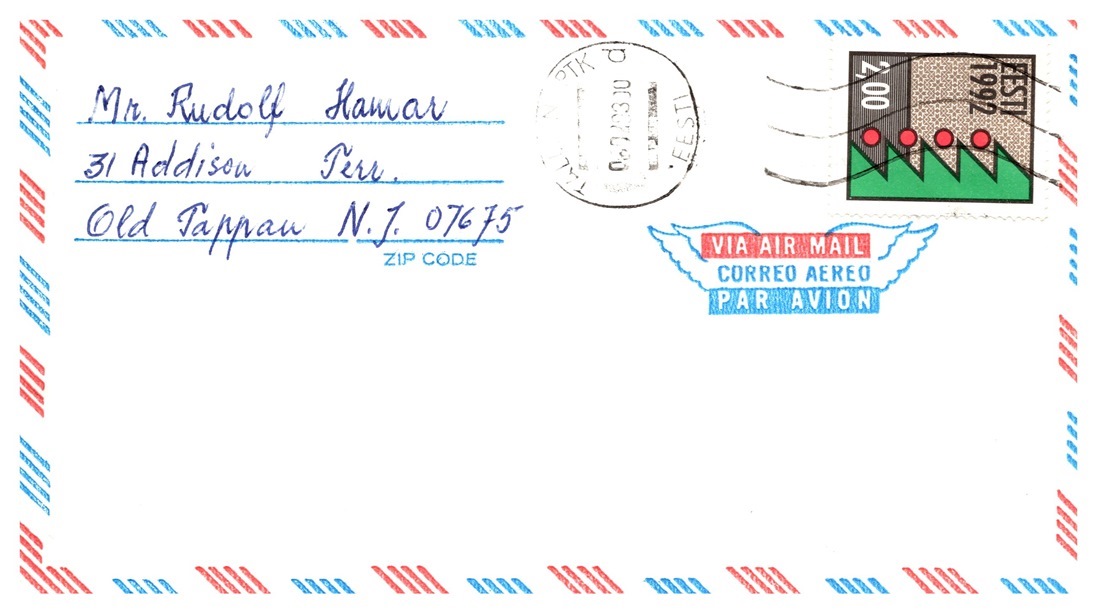 Mr. Rudolf Hamar
31 Addison Terr.
Old Tappan N.J. 07675
ZIP CODE
PTK d
EESTI
EESTI
1992
2,00
VIA AIR MAIL
CORREO AEREO
PAR AVION